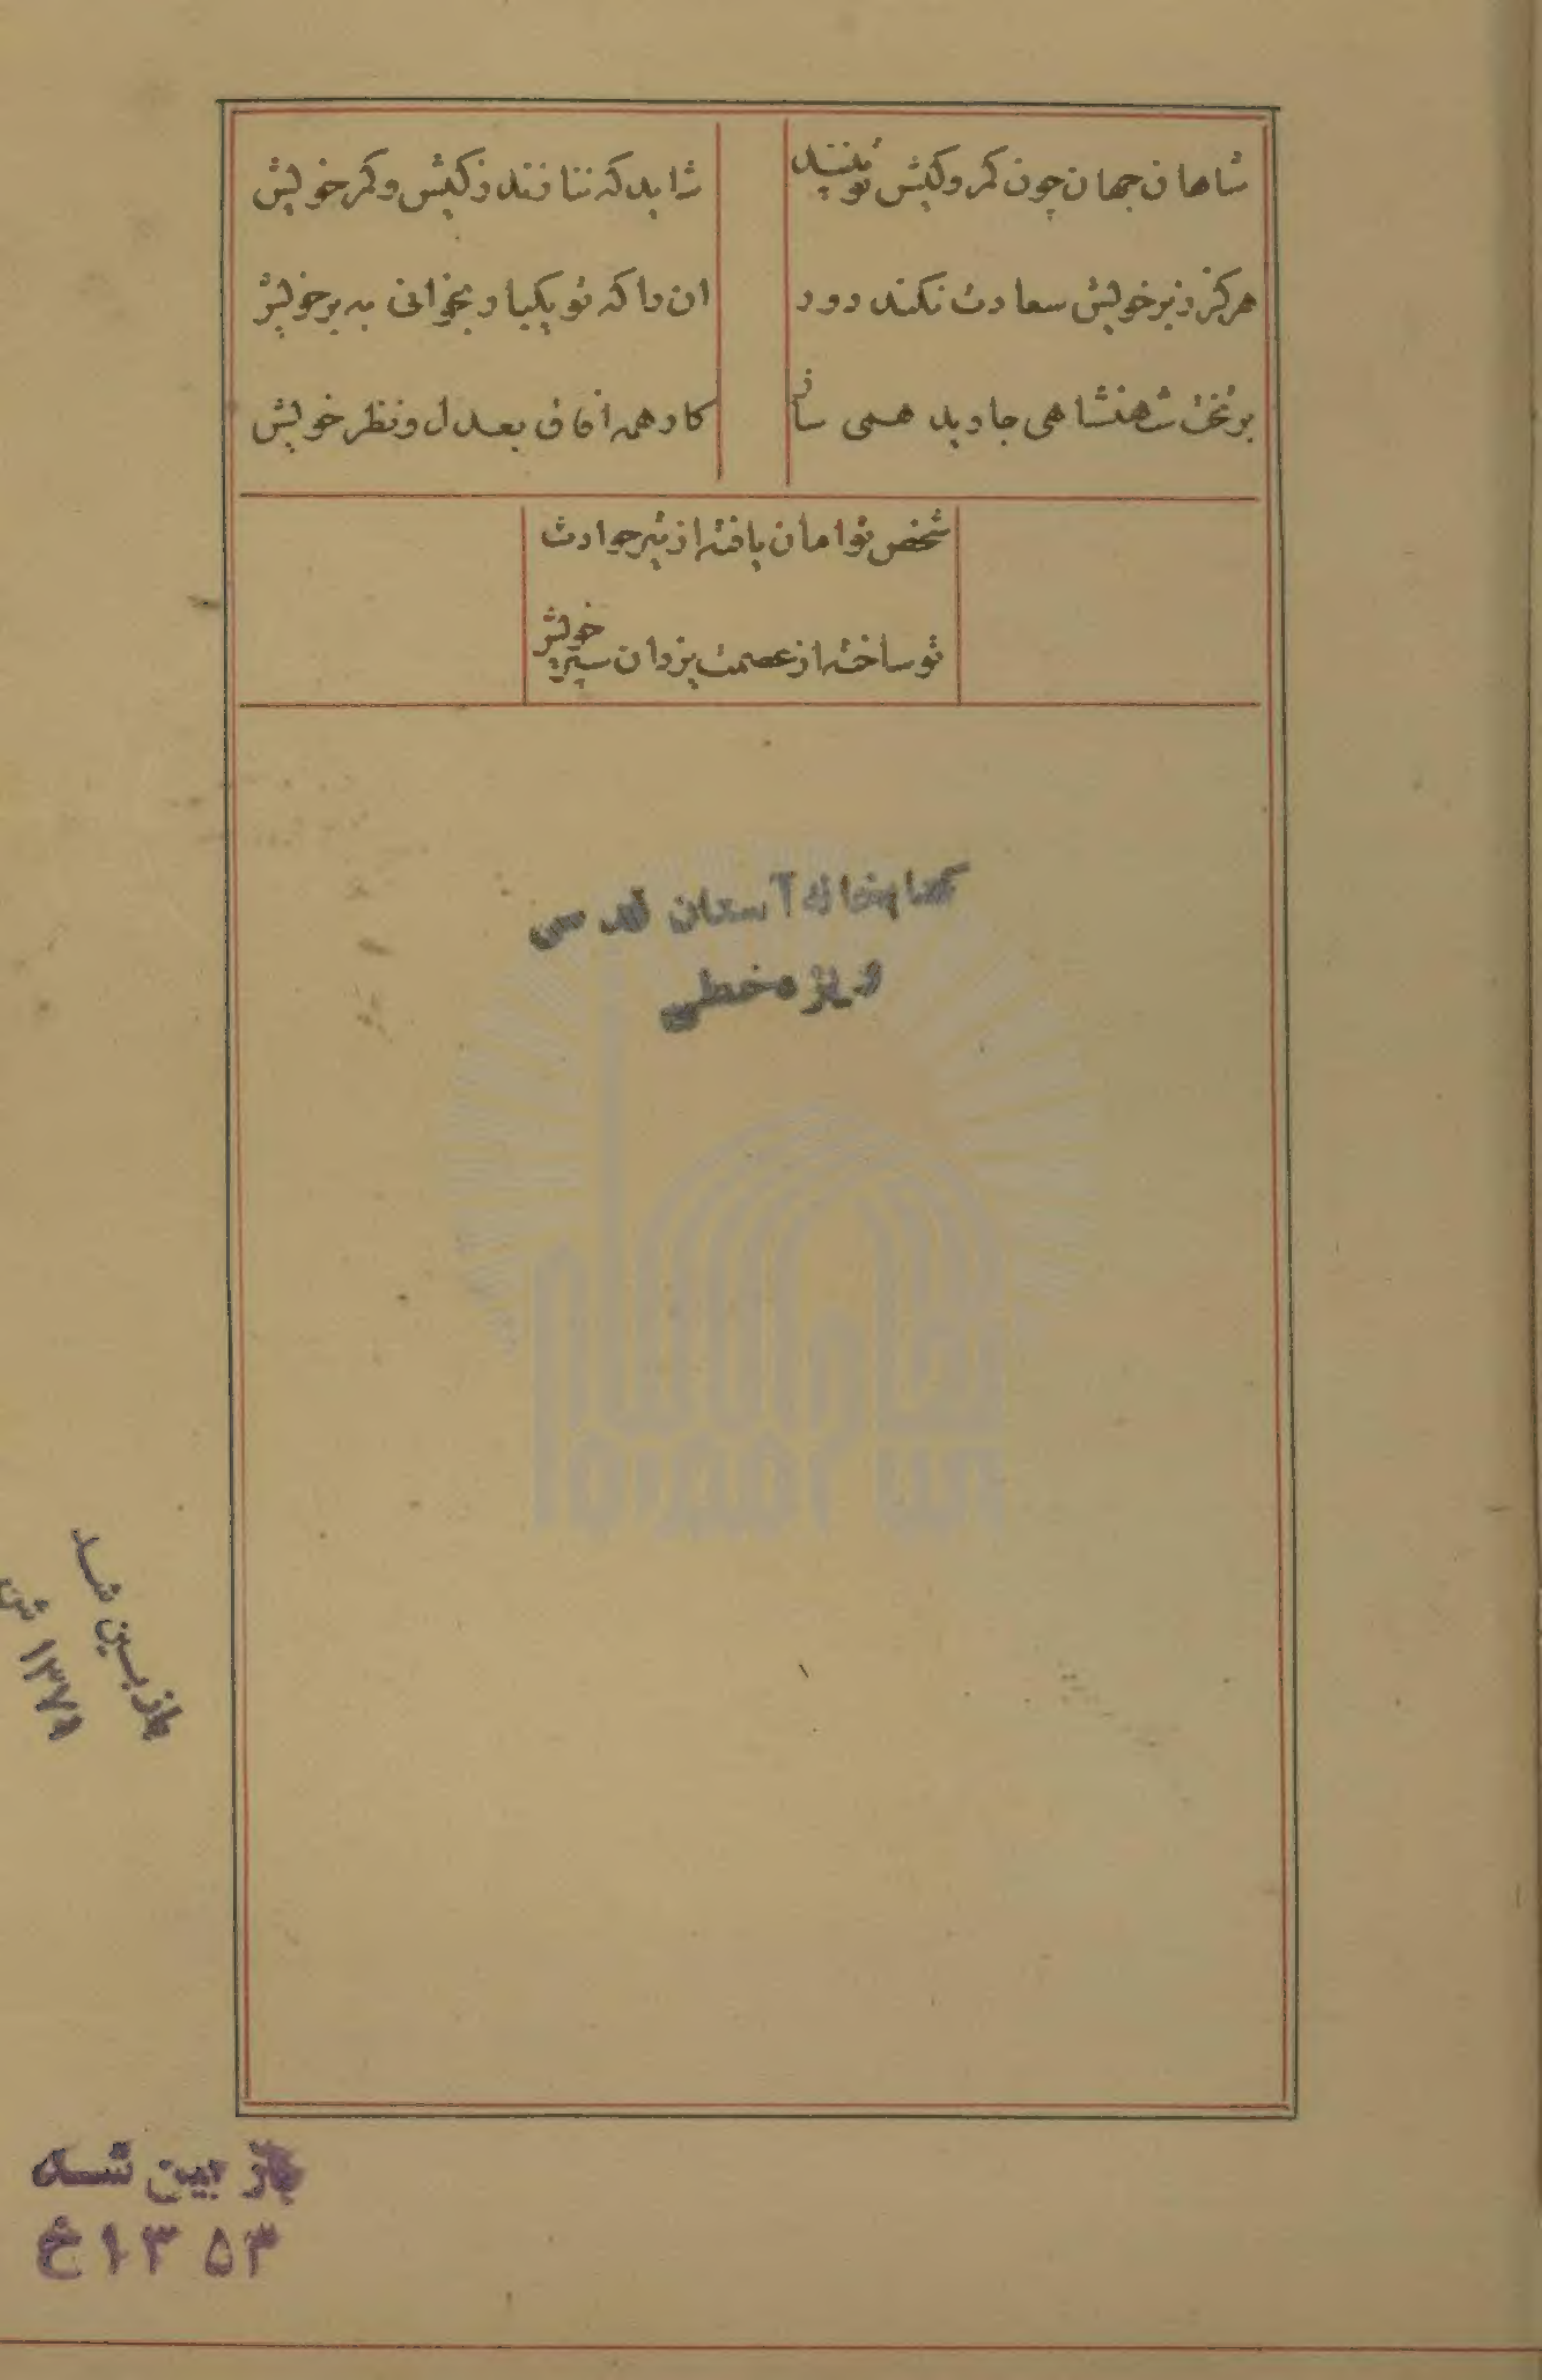 شاهان جهان چون کمر و کیش تو بینند
شاید که نتافند ز کیش و کمر خویش
هرگز ز بر خویش سعادت نکند دور
ان را که تو یکبار بخوانی به بر خویش
بر تخت شهنشاهی جاوید همی ساز
کار همه افاق بعدل و نظر خویش
شخص تو امان یافته از تیر حوادث
تو ساخته از عصمت یزدان سپر خویش
کتابخانه آستان قدس
ویژه خطی
بازبین شد
۱۳۷۹ ش
باز بین شد
۱۳۵۳ خ